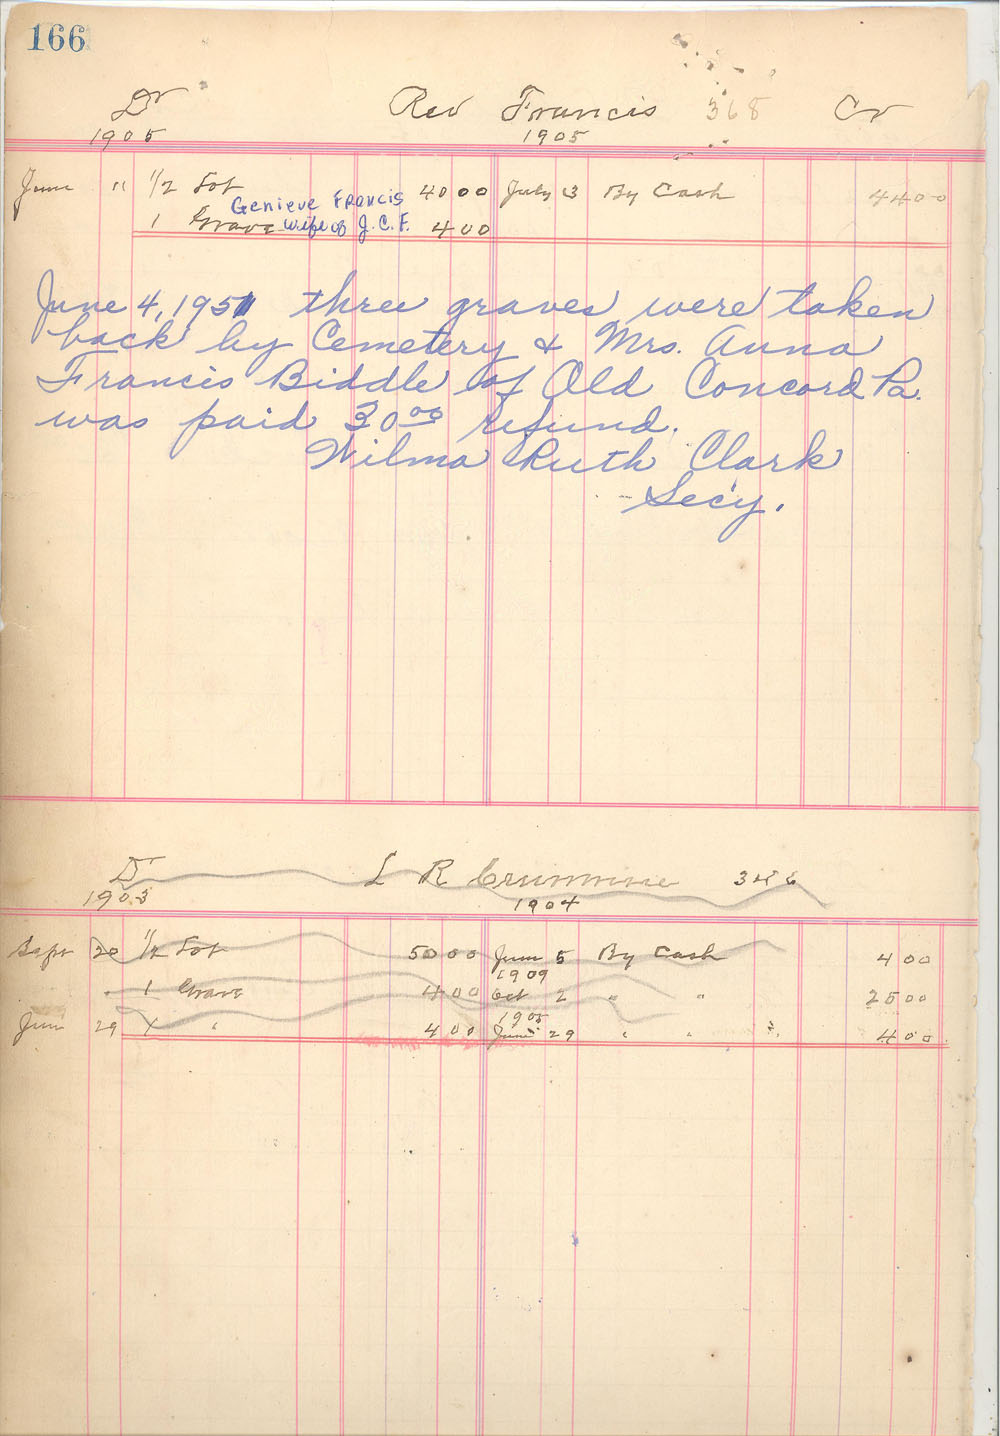 166
Dr Rev Francis 368 Cr
1905 1905
June 11 1/2 Lot 40 00 July 3 By Cash 44 00
Genieve Francis
1 Grave wife of J.C.F. 4 00
June 4, 1951 three graves were taken
back by Cemetery & Mrs. Anna
Francis Biddle of Old Concord Pa.
was paid 30 00 refund.
Wilma Ruth Clark
Sec'y.
Dr L R Crumrine
1903 1904
Sept 20 1/2 Lot 50 00 June 5 By Cash 4 00
1909
1 Grave 4 00 Oct 2 " " 25 00
1905
June 29 1 " 4 00 June 29 " " 4 00